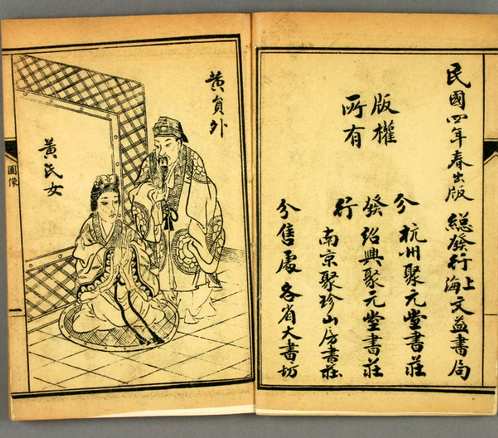 民國四年春出版
總發行上海文益書局
分 杭州聚元堂書莊
發 紹興聚元堂書莊
行 南京聚珍山房書莊
分售處 各省大書坊
版權
所有
黃員外
黃氏女
圖像
一